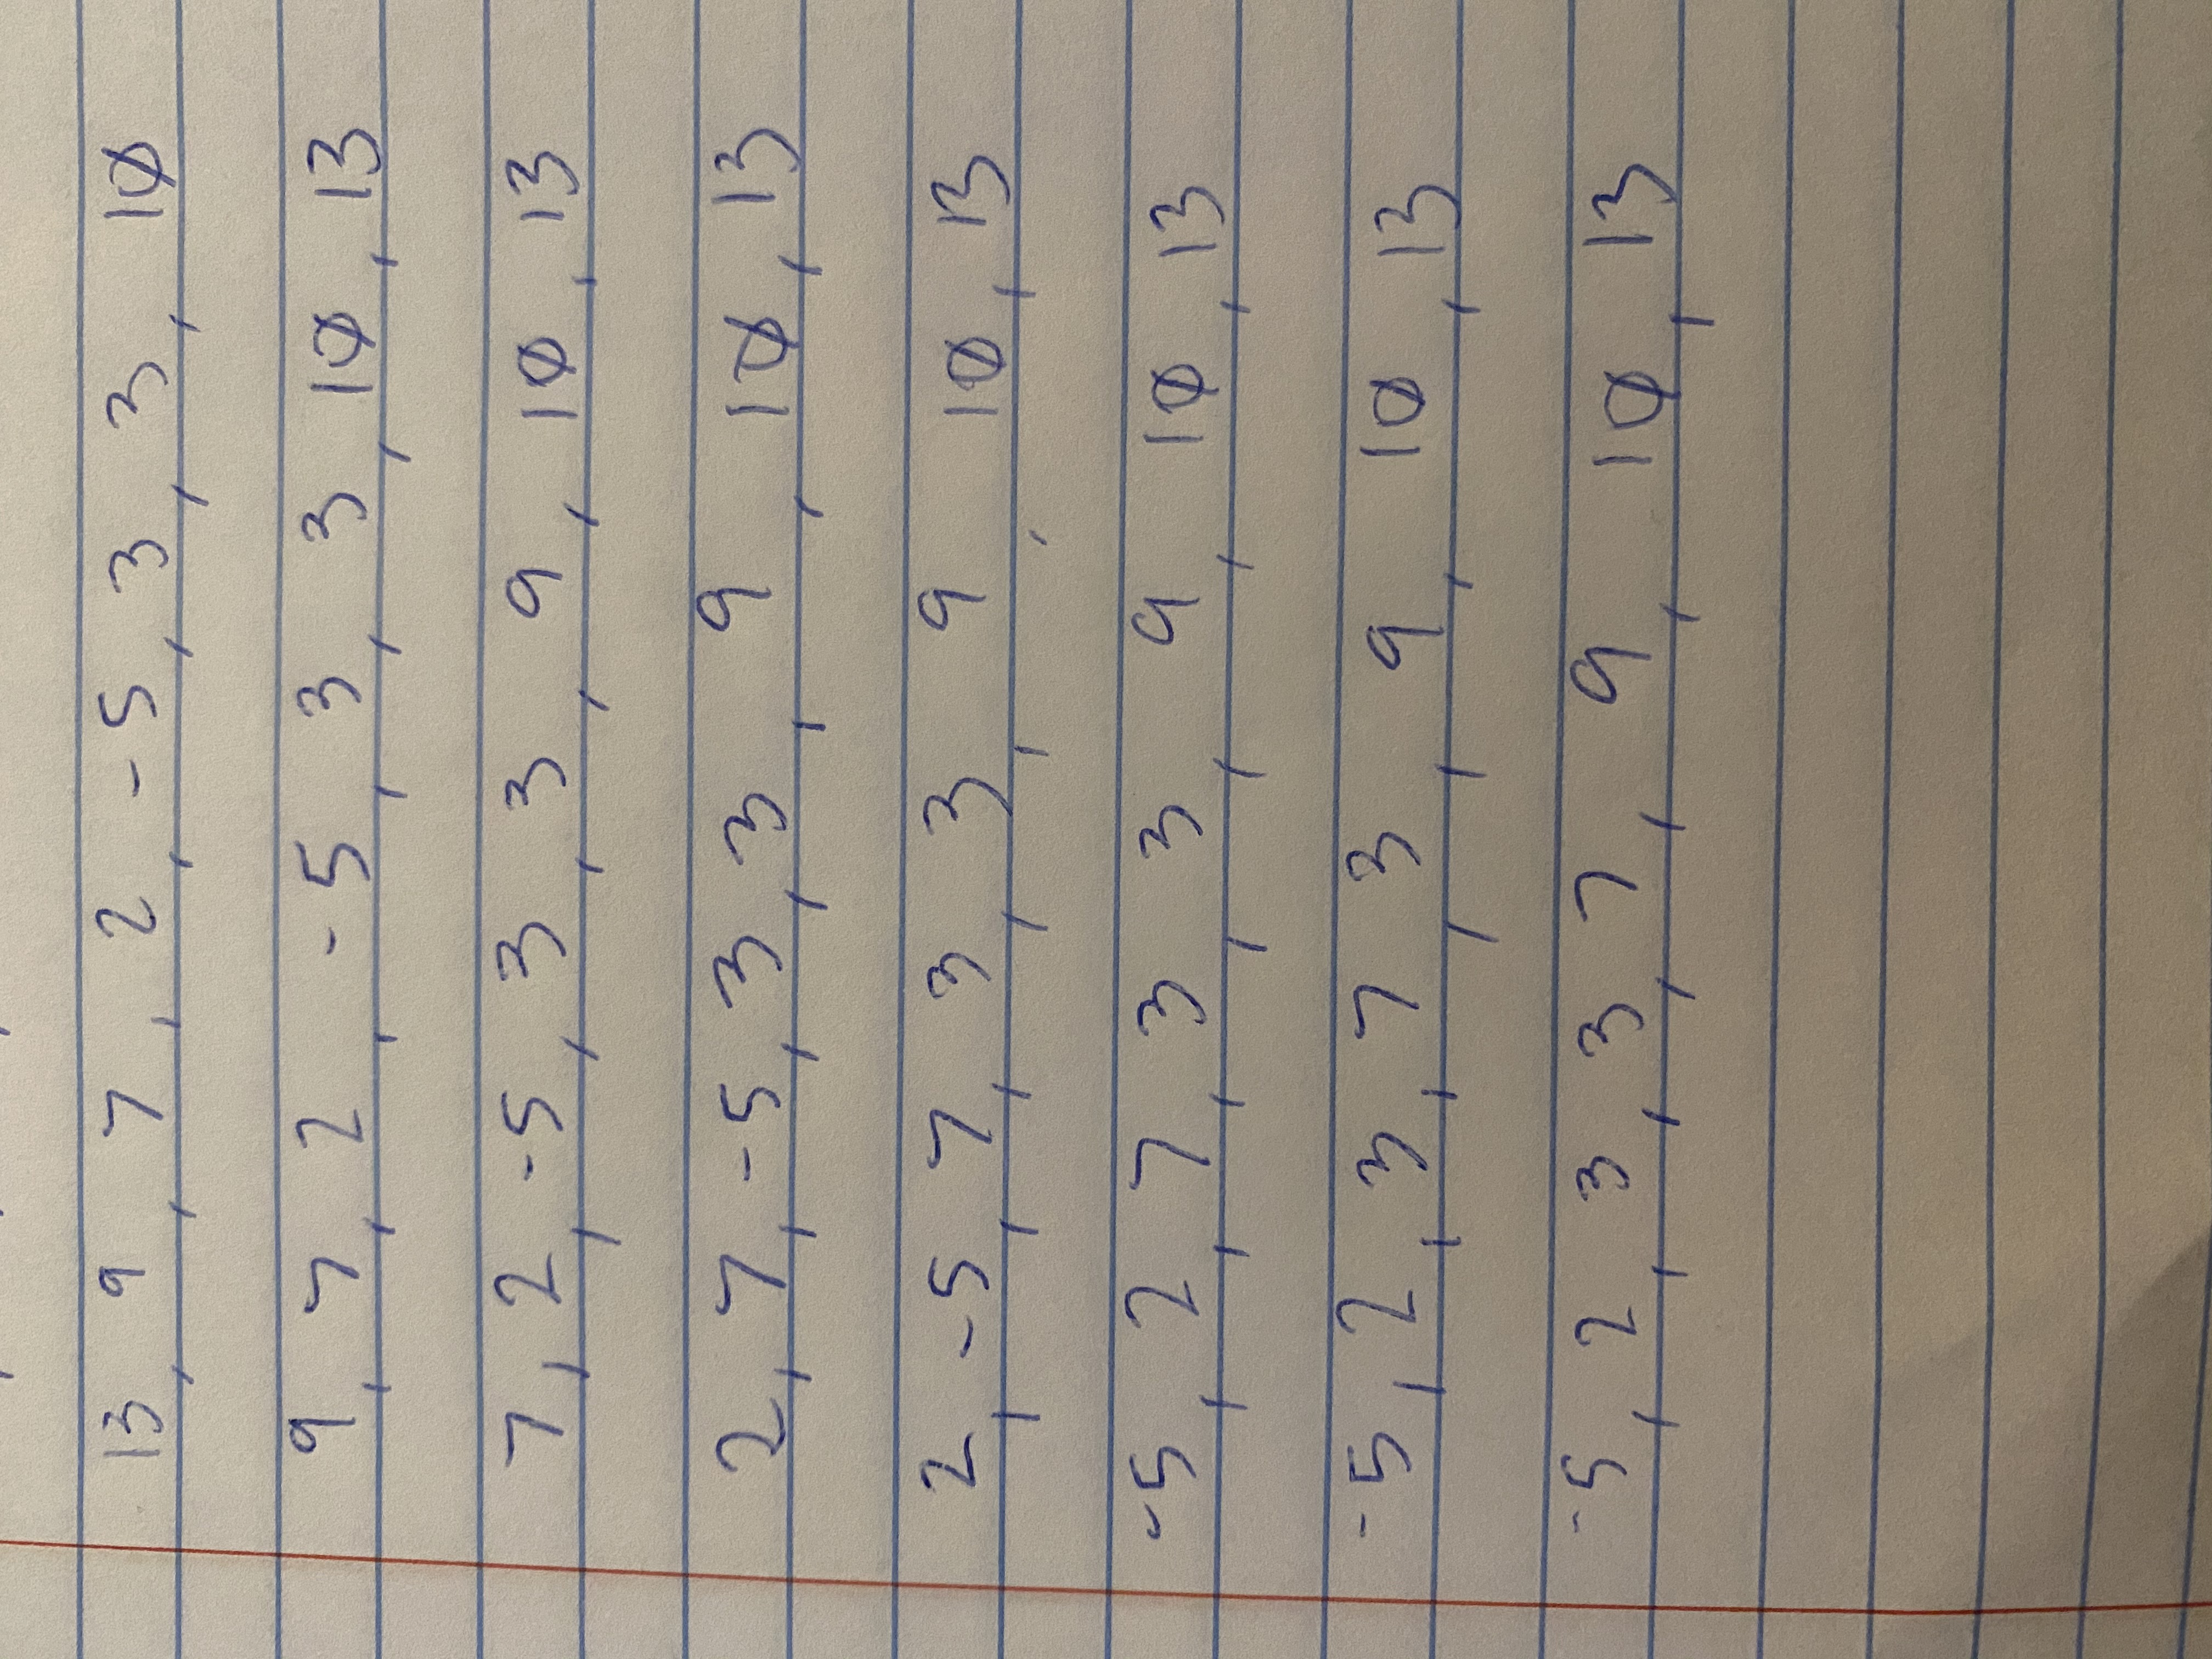 13, 9, 7, 2, -5, 3, 3, 10
9, 7, 2, -5, 3, 3, 10, 13
7, 2, -5, 3, 3, 9, 10, 13
2, 7, -5, 3, 3, 9, 10, 13
2, -5, 7, 3, 3, 9, 10, 13
-5, 2, 7, 3, 3, 9, 10, 13
-5, 2, 3, 7, 3, 9, 10, 13
-5, 2, 3, 3, 7, 9, 10, 13